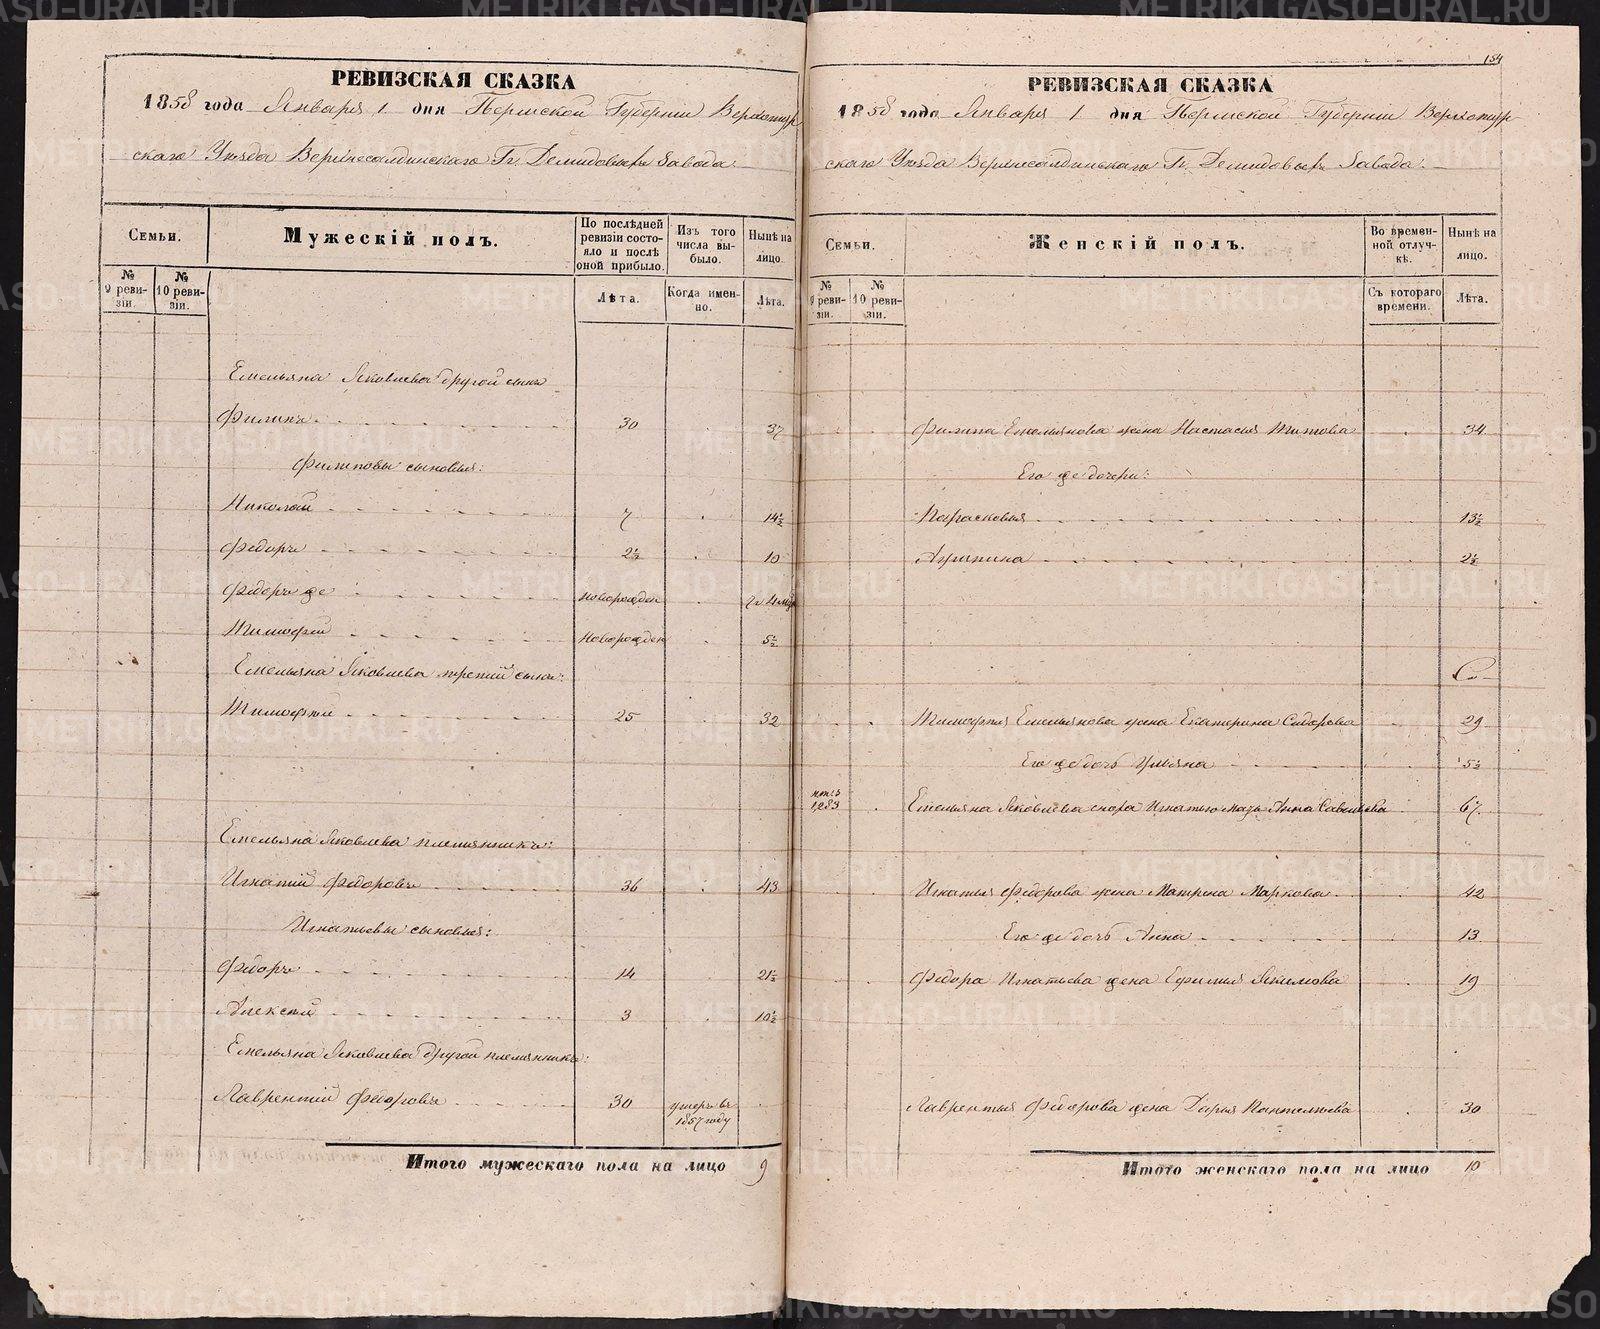 РЕВИЗСКАЯ СКАЗКА
1858 года Января 1 дня Пермской Губернiи Верхотур
скаго Уѣзда Верхнесалдинскаго Гг. Демидовыхъ Завода.
Семьи.
Мужескiй полъ.
По послѣдней ревизiи состояло и послѣ оной прибыло.
Изъ того числа выбыло.
Нынѣ на лицо.
№ 9 ревизiи.
№ 10 ревизiи.
Лѣта.
Когда именно.
Лѣта.
Емельяна Яковлева другой сынъ
Филипъ 30 37
Филиповы сыновья:
Николай 7 14½
Федоръ 2½ 10
Федоръ же новорожден
Тимофей новорожден 5½
Емельяна Яковлева третiй сынъ:
Тимофей 25 32
Емельяна Яковлева племянникъ:
Игнатiй Федоровъ 36 43
Игнатьевы сыновья:
Федоръ 14 21½
Алексѣй 3 10½
Емельяна Яковлева другой племянникъ:
Лаврентiй Федоровъ 30 умеръ въ 1857 году
Итого мужескаго пола на лицо 9
184
РЕВИЗСКАЯ СКАЗКА
1858 года Января 1 дня Пермской Губернiи Верхотур
скаго Уѣзда Верхнесалдинскаго Гг. Демидовыхъ Завода.
Семьи.
Женскiй полъ.
Во временной отлучкѣ.
Нынѣ на лицо.
№ 9 ревизiи.
№ 10 ревизiи.
Съ котораго времени.
Лѣта.
Филипа Емельянова жена Настасья Титова 34
Его же дочери:
Парасковья 13½
Агрипина 2½
Тимофея Емельянова жена Екатерина Сидорова 29
Его же дочь Ульяна 5½
1283 Емельяна Яковлева сноха Игнатью мать Анна Савельева 67
Игнатья Федорова жена Матрена Маркова 42
Его же дочь Анна 13
Федора Игнатьева жена Ефимья Якимова 19
Лаврентья Федорова жена Дарья Пантелѣева 30
Итого женскаго пола на лицо 10